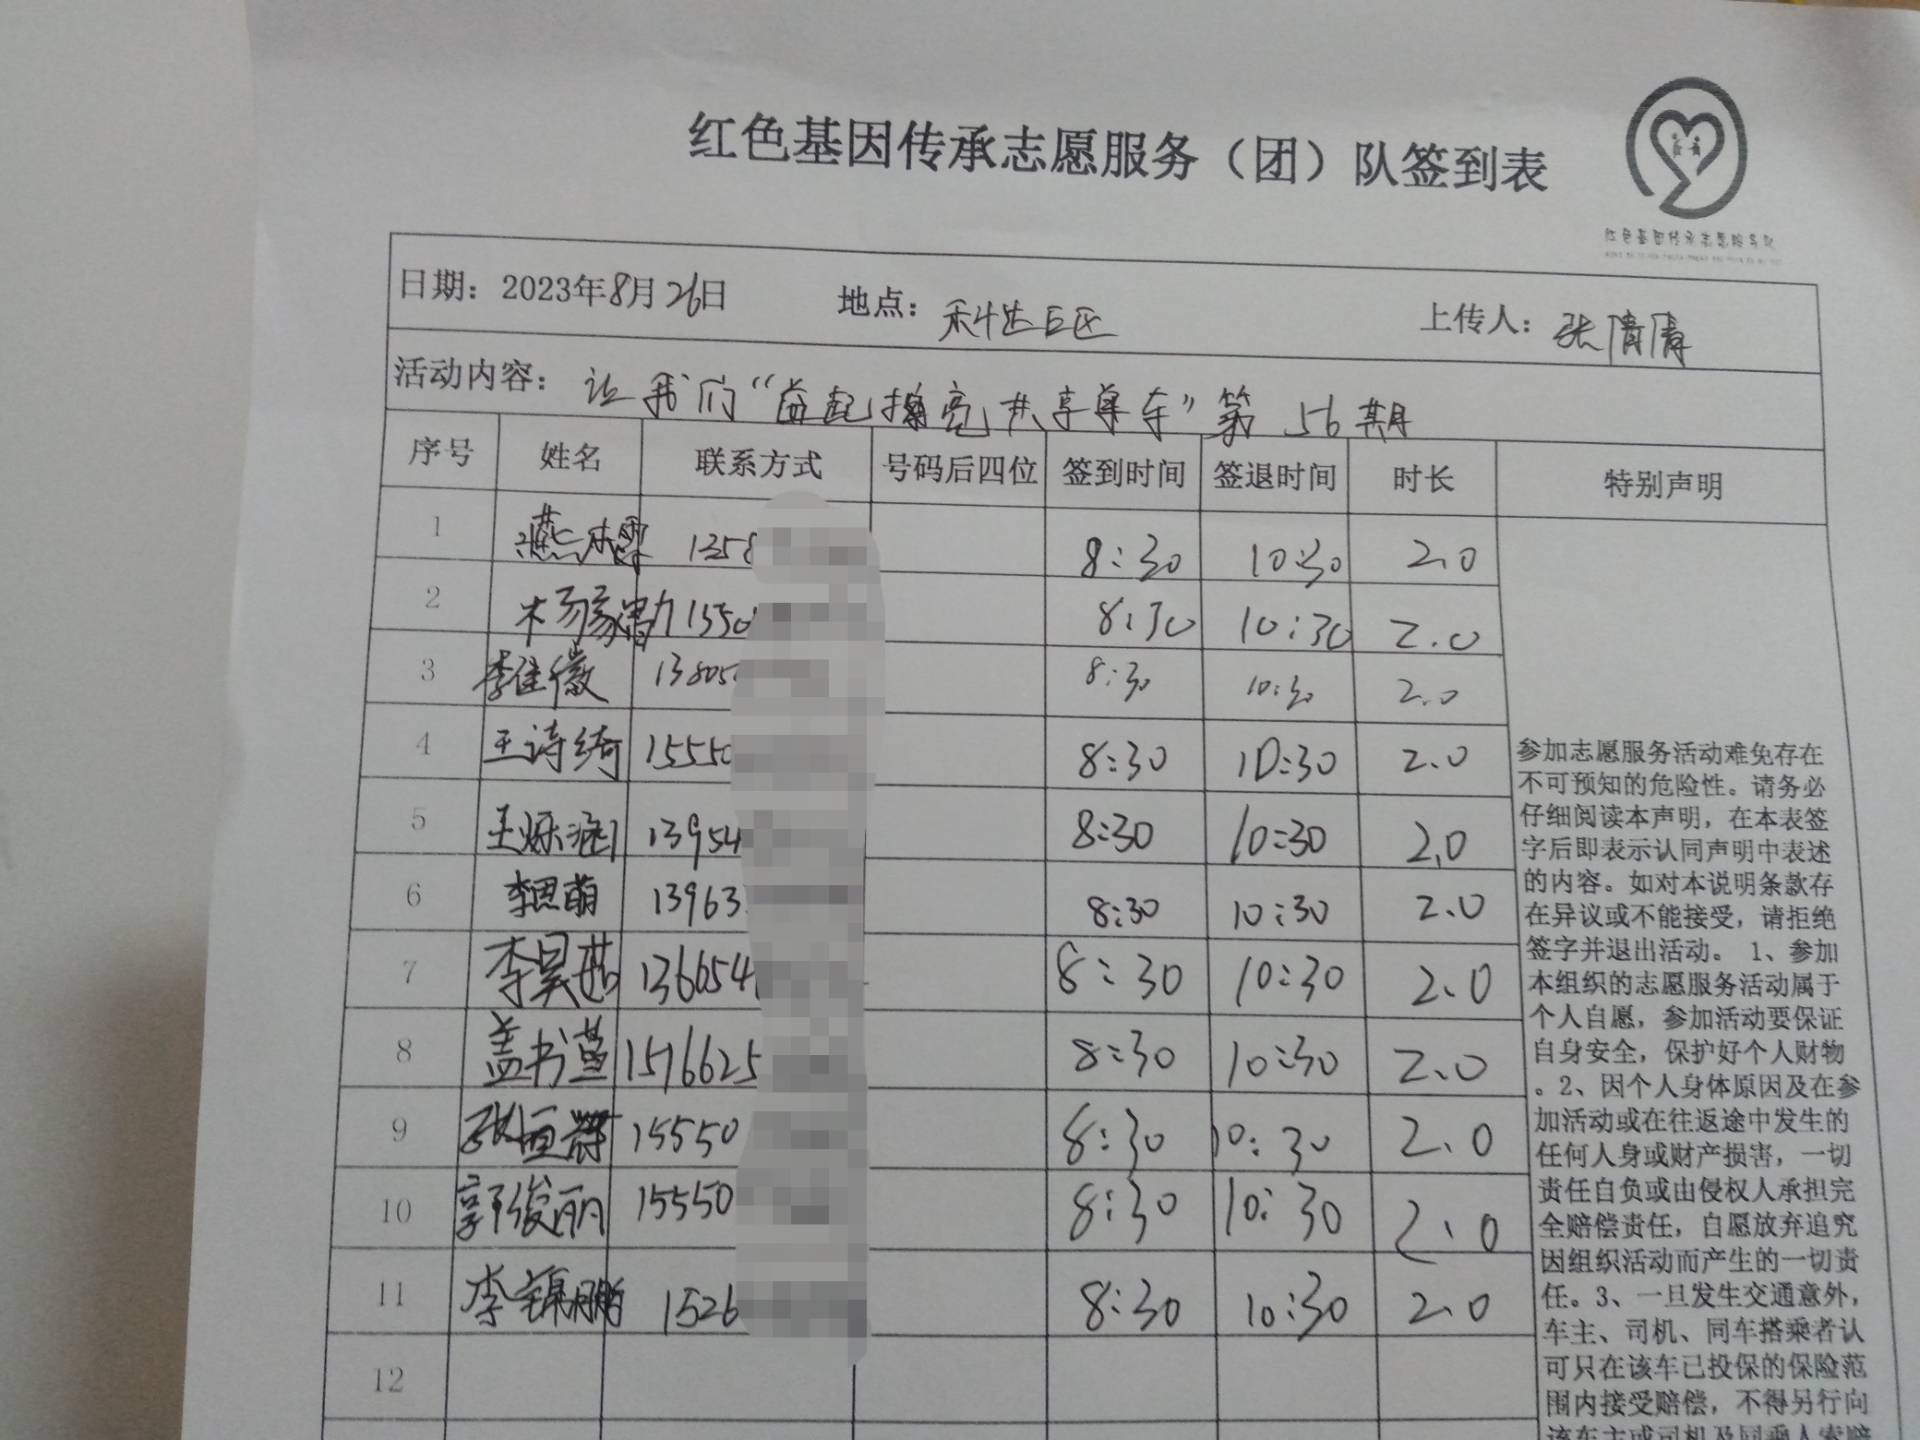 红色基因传承志愿服务（团）队签到表
红色基因传承志愿服务队
日期：2023年8月26日 地点：科达巨区 上传人：张倩倩
活动内容：让我们“益起擦亮共享单车”第56期
序号 姓名 联系方式 号码后四位 签到时间 签退时间 时长 特别声明
1 1358 8:30 10:30 2.0
2 1550 8:30 10:30 2.0
3 李佳徽 13805 8:30 10:30 2.0
4 王诗绮 15550 8:30 10:30 2.0
5 王烁涵 13954 8:30 10:30 2.0
6 李思萌 13963 8:30 10:30 2.0
7 李昊茹 136654 8:30 10:30 2.0
8 盖书萱 1576625 8:30 10:30 2.0
9 15550 8:30 10:30 2.0
10 郭俊丽 15550 8:30 10:30 2.0
11 李锦鹏 1526 8:30 10:30 2.0
12
参加志愿服务活动难免存在
不可预知的危险性。请务必
仔细阅读本声明，在本表签
字后即表示认同声明中表述
的内容。如对本说明条款存
在异议或不能接受，请拒绝
签字并退出活动。 1、参加
本组织的志愿服务活动属于
个人自愿，参加活动要保证
自身安全，保护好个人财物
。2、因个人身体原因及在参
加活动或在往返途中发生的
任何人身或财产损害，一切
责任自负或由侵权人承担完
全赔偿责任，自愿放弃追究
因组织活动而产生的一切责
任。3、一旦发生交通意外，
车主、司机、同车搭乘者认
可只在该车已投保的保险范
围内接受赔偿，不得另行向
该车主或司机及同乘人索赔